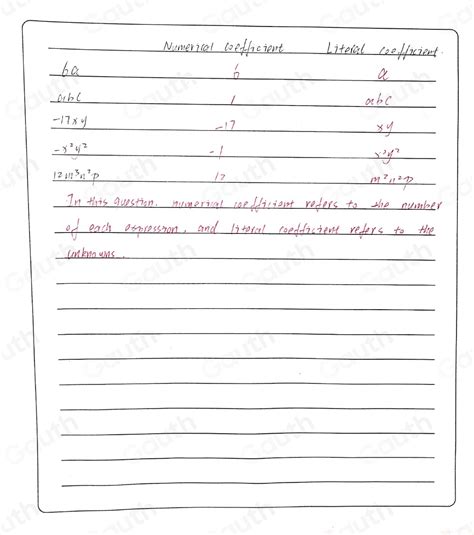 Numerical coefficient Literal coefficient
6a 6 a
abc 1 abc
-17xy -17 xy
-x²y² -1 x²y²
12m³n²p 12 m³n²p
In this question, numerical coefficient refers to the number
of each expression, and literal coefficient refers to the
unknowns.